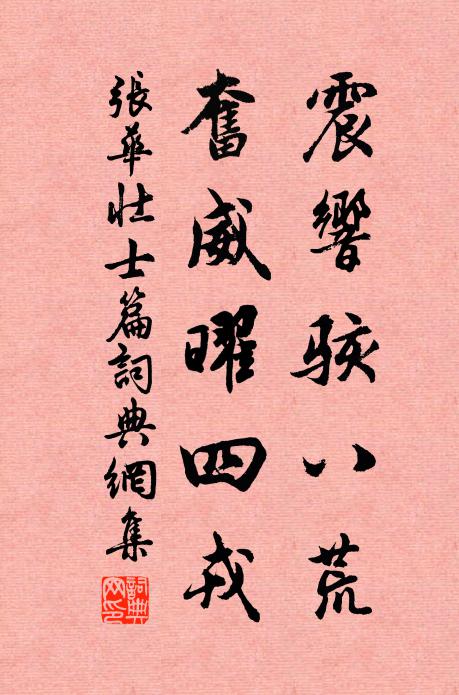 震響駭八荒
奮威曜四戎
張華壯士篇詞典網集
詞典網印